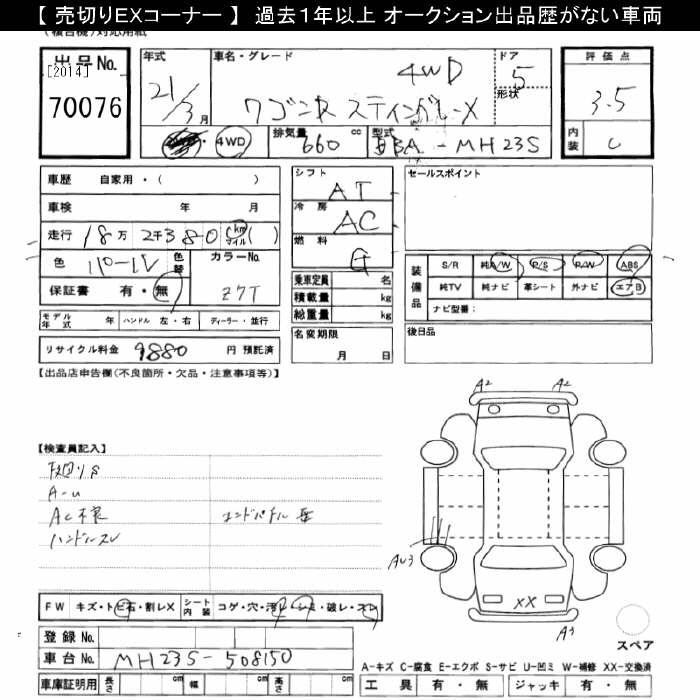 【 売切りEXコーナー 】 過去1年以上 オークション出品歴がない車両
出品No.
[2014]
70076
年式
21/3月
車名・グレード
4WD
ワゴンR スティングレーX
ドア
5
形状
4WD
排気量 660 cc
型式 DBA-MH23S
評価点
3.5
内装 C
車歴 自家用・( )
車検 年 月
走行 18万2千380 km マイル ( )
色 パール
色替
カラーNo.
Z7T
保証書 有・無
モデル年式 年 ハンドル 左・右 ディーラー・並行
リサイクル料金 9880 円 預託済
シフト
AT
冷房
AC
燃料
G
乗車定員 名
積載量 kg
総重量 kg
名変期限
月 日
セールスポイント
装備品
S/R 純A/W P/S P/W ABS
純TV 純ナビ 革シート 外ナビ エアB
ナビ型番:
後日品
【出品店申告欄(不良箇所・欠品・注意事項等)】
【検査員記入】
下廻りS
A-U
AC不良
ハンドルスレ
エンドパネル歪
A2 A2
AU3
XX
A3
スペア
FW キズ・トビ石・割レX シート内装 コゲ・穴・汚レ・シミ・破レ・スレ
登録 No.
車台 No. MH23S-508150
車庫証明用 長さ cm 幅 cm 高さ cm
A-キズ C-腐食 E-エクボ S-サビ U-凹ミ W-補修 XX-交換済
工具 有・無 ジャッキ 有・無